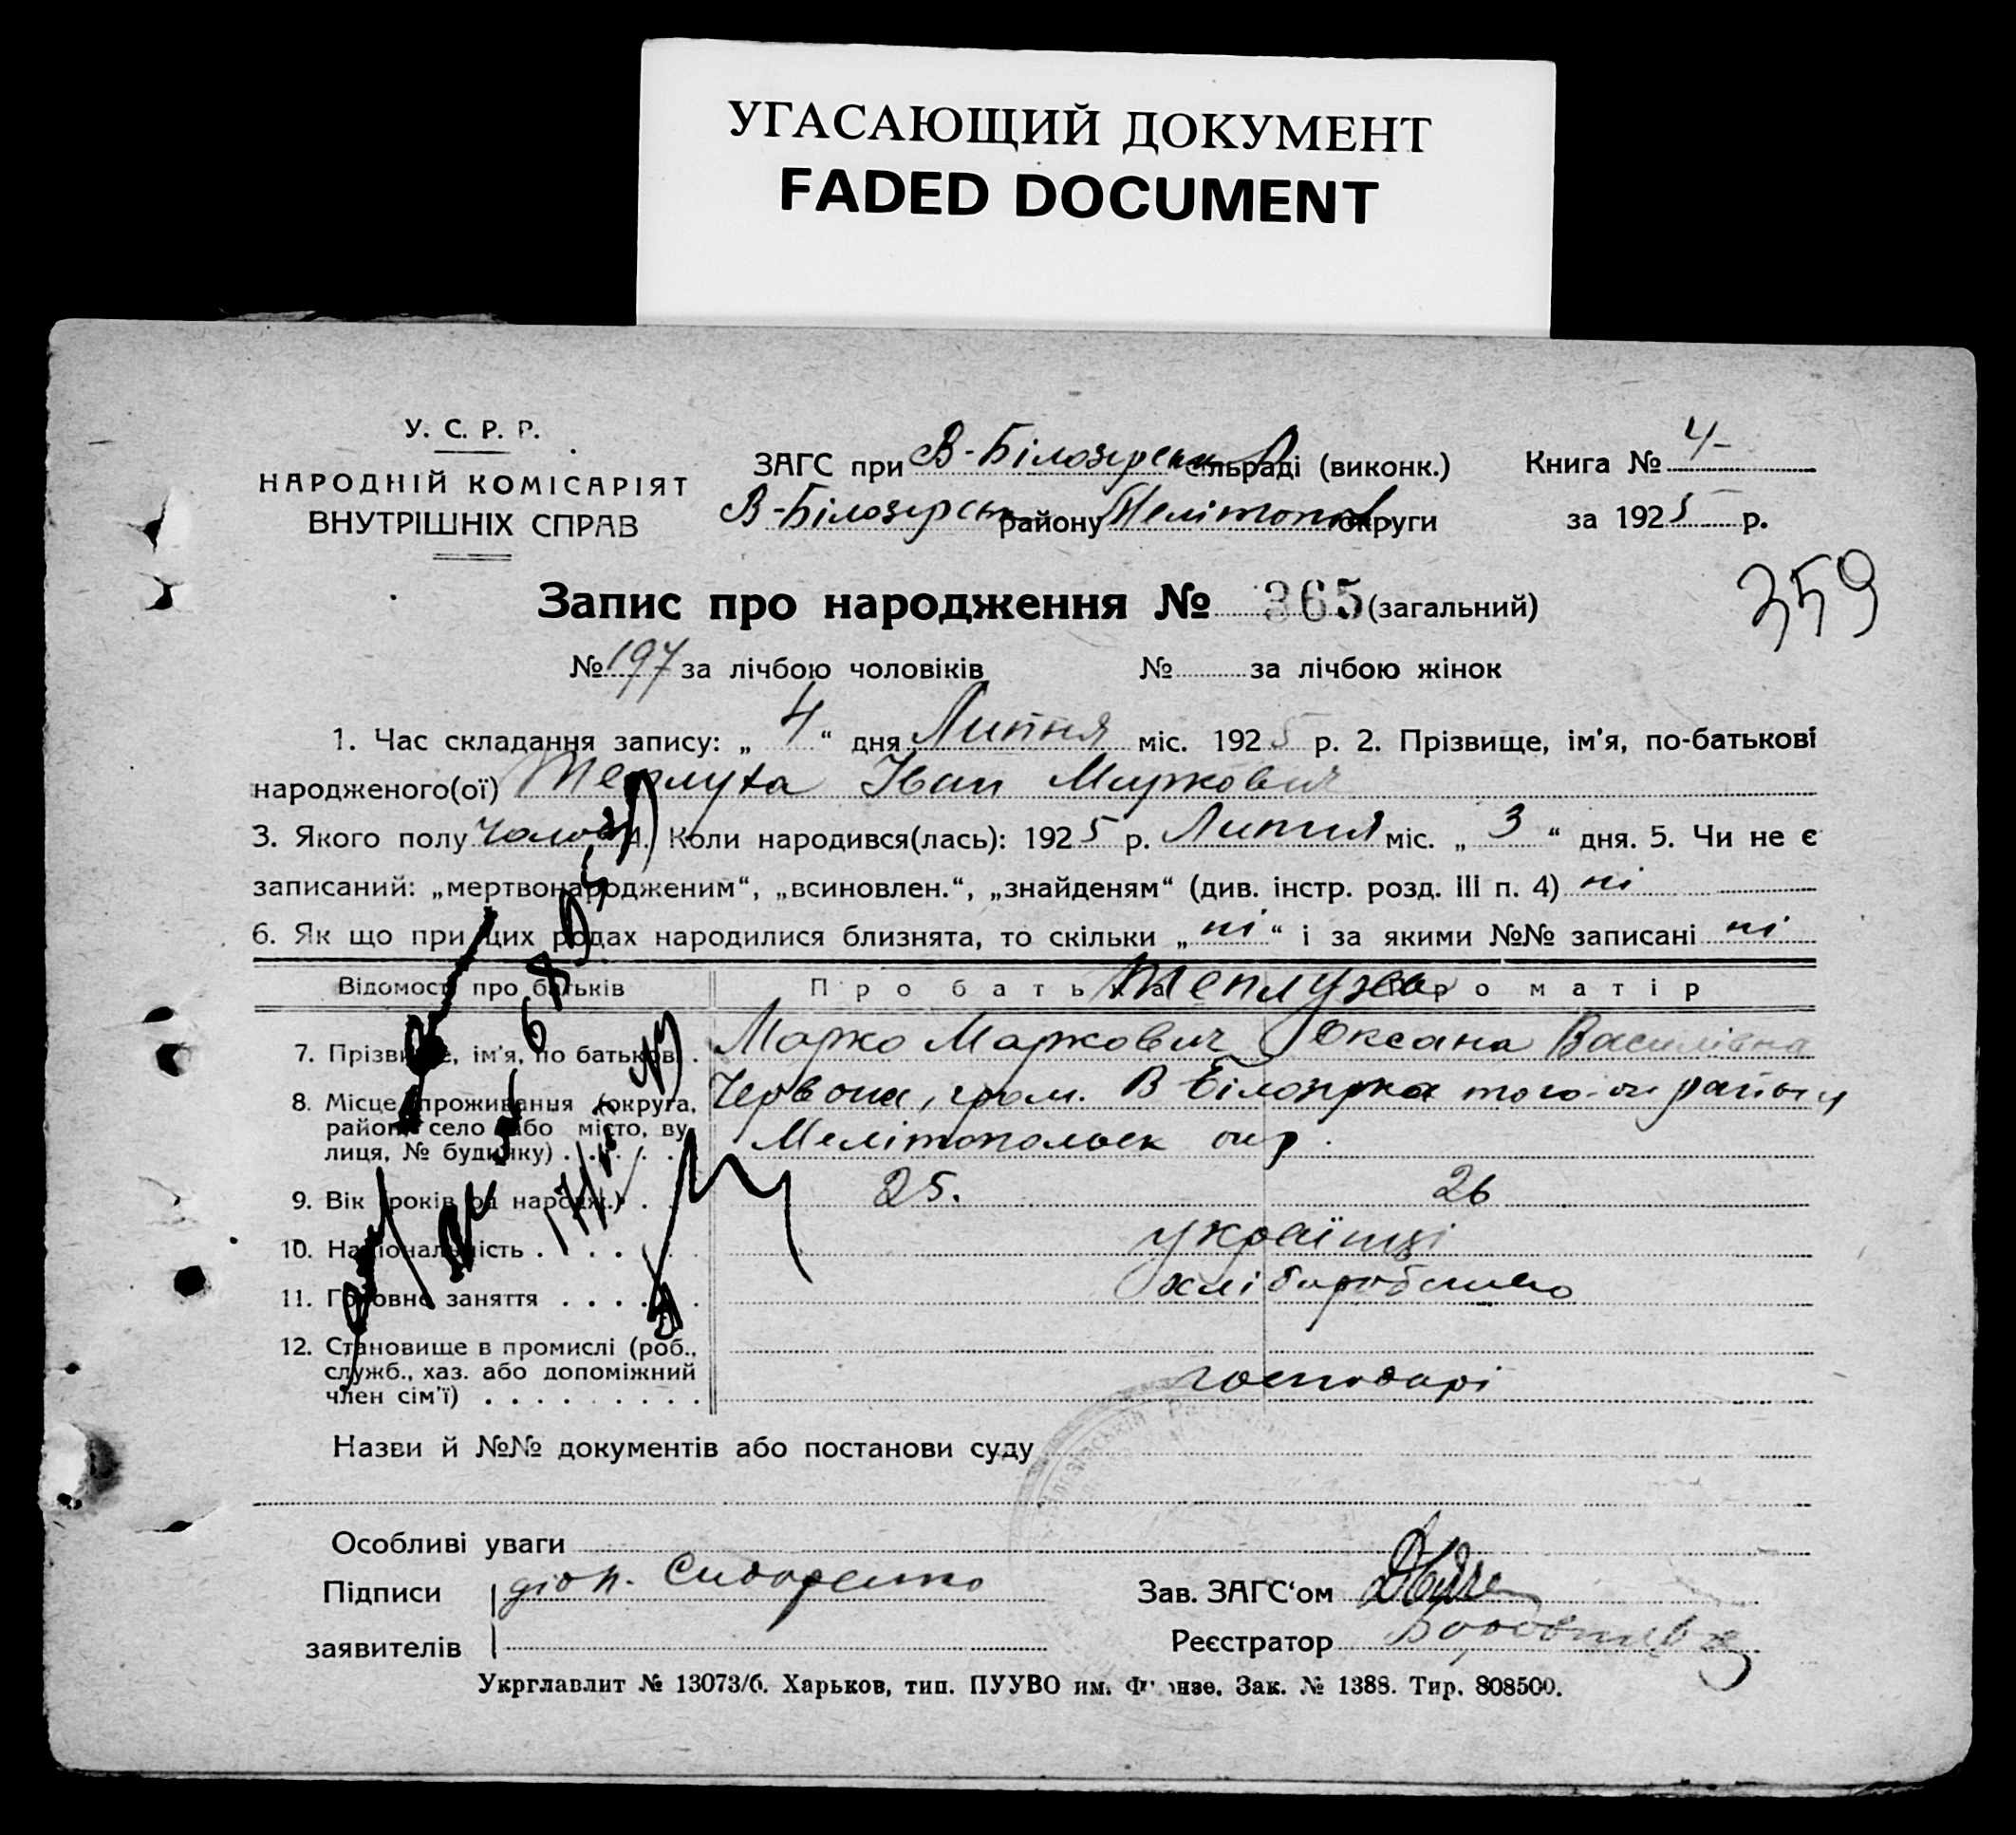 УГАСАЮЩИЙ ДОКУМЕНТ
FADED DOCUMENT
У. С. Р. Р.
НАРОДНІЙ КОМІСАРІЯТ
ВНУТРІШНІХ СПРАВ
ЗАГС при В-Білозерськ сільраді (виконк.)
В-Білозерськ району Мелітопол округи
Книга № 4-
за 1925 р.
359
Запис про народження № 365 (загальний)
№ 197 за лічбою чоловіків № за лічбою жінок
1. Час складання запису: „ 4 “ дня Липня міс. 1925 р. 2. Прізвище, ім'я, по-батькові
народженого(ої) Теплуха Іван Маркович
3. Якого полу Чолов 4. Коли народився(лась): 1925 р. Липня міс. „ 3 “ дня. 5. Чи не є
записаний: „мертвонародженим“, „всиновлен.“, „знайденям“ (див. інстр. розд. III п. 4) ні
6. Як що при цих родах народилися близнята, то скільки „ ні “ і за якими №№ записані ні
Відомості про батьків Про батька Про матір
7. Прізвище, ім'я, по батькові . Марко Маркович Оксана Василівна
8. Місце проживання (округа, район, село або місто, вулиця, № будинку) Червона, гром. В Білозірка того-ж району
Мелітопольск окр.
9. Вік (років од народж.) . . 25. 26
10. Національність . . . . . українці
11. Головне заняття . . . . . . хліборобство
12. Становище в промислі (роб.,
служб., хаз. або допоміжний
член сім'ї) . . . . . . . . . господарі
Назви й №№ документів або постанови суду
Особливі уваги
Підписи діоп. Сидоренко Зав. ЗАГС'ом
заявителів Реєстратор
Укрглавлит № 13073/б. Харьков, тип. ПУУВО им. Фрунзе. Зак. № 1388. Тир. 808500.